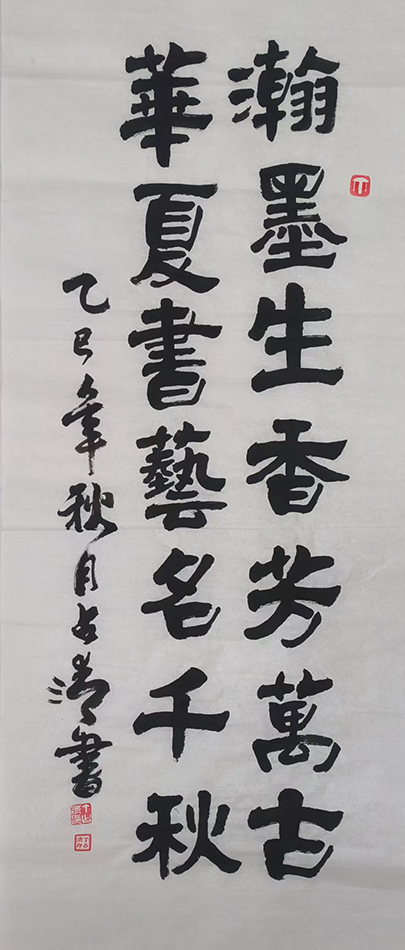 瀚墨生香芳萬古
華夏書藝名千秋
乙巳年秋月占濤書